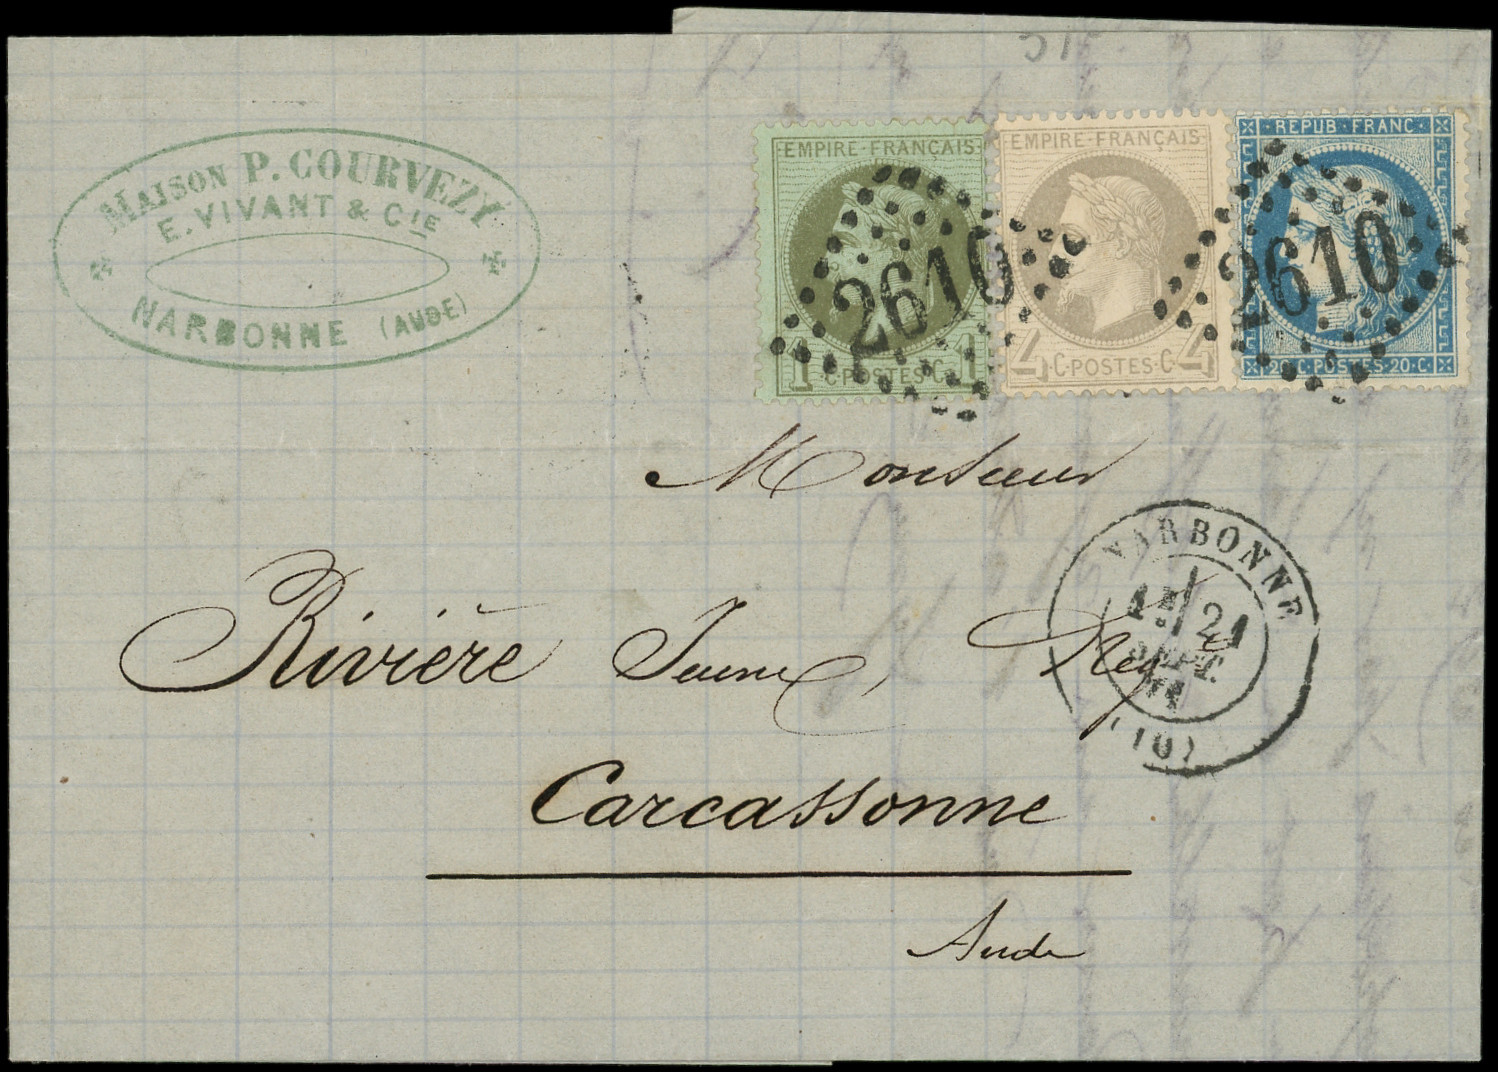 MAISON P. COURVEZY
E. VIVANT & CIE
NARBONNE (AUDE)
EMPIRE FRANÇAIS
1 C. POSTES C. 1
EMPIRE FRANÇAIS
4 C. POSTES C. 4
REPUB FRANC
20 C. POSTES 20 C.
2610
2610
Monsieur
Rivière Jeune, Neg
Carcassonne
Aude
NARBONNE
21
SEPT.
71
(10)